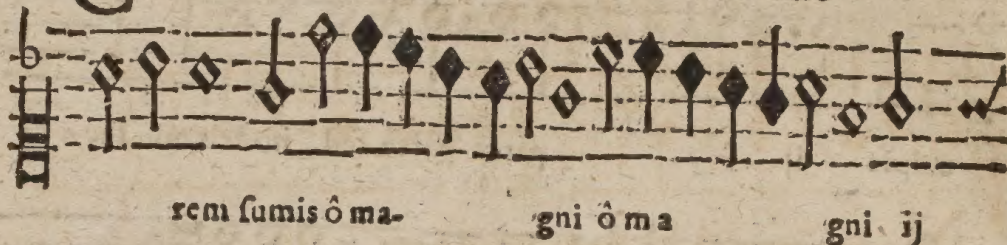 rem ſumis ô ma- gni ô ma gni ij